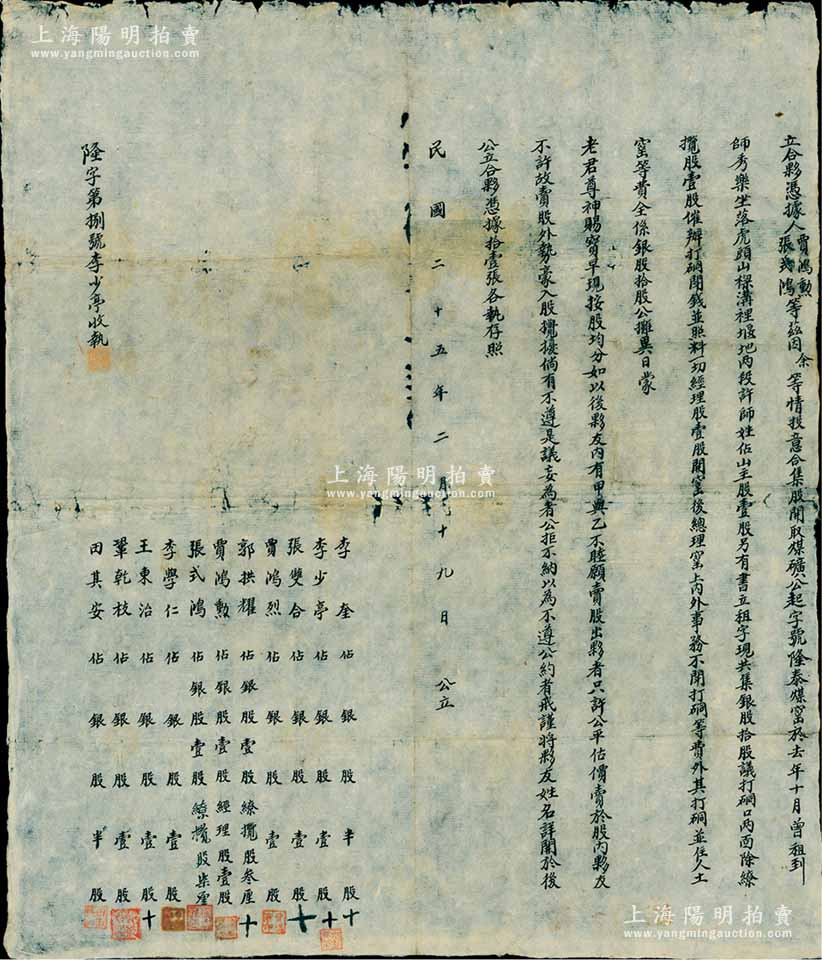 上海陽明拍賣
www.yangmingauction.com
立合夥憑據人賈鴻勲張式鴻等茲因余等情投意合集股開取煤礦公起字號隆泰煤窰於去年十月曾租到
師秀樂坐落虎頭山樑溝裡堰地兩段許師姓佔山主股壹股另有書立租字現共集銀股拾股議打硐口兩面除繚
攬股壹股催辦打硐開錢並照料一切經理股壹股開窰後總理窰上內外事務不開打硐等費外其打硐並住人土
窰等費全係銀股拾股公攤異日蒙
老君尊神賜寶早現按股均分如以後夥友內有甲與乙不睦願賣股出夥者只許公平估價賣於股內夥友
不許故賣股外勢豪入股攪擾倘有不遵是議妄為者公拒不納以為不遵公約者戒謹將夥友姓名詳開於後
公立合夥憑據拾壹張各執存照
民國二十五年二月十九日 公立
李奎佔銀股半股十
李少亭佔銀股壹股
張雙合佔銀股壹股十
賈鴻烈佔銀股壹股
郭拱耀佔銀股壹股繚攬股叁厘十
賈鴻勲佔銀股壹股經理股壹股
張式鴻佔銀股壹股繚攬股柒厘
李學仁佔銀股壹股
王東治佔銀股壹股十
鞏乾枝佔銀股壹股
田其安佔銀股半股
隆字第捌號李少亭收執
上海陽明拍賣
www.yangmingauction.com
上海陽明拍賣
www.yangmingauction.com